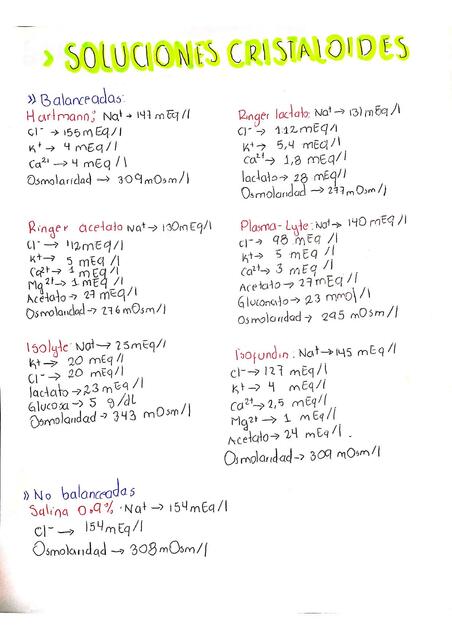 > SOLUCIONES CRISTALOIDES
» Balanceadas:
Hartmann: Na⁺ → 147 mEq/l
Cl⁻ → 155 mEq/l
K⁺ → 4 mEq/l
Ca²⁺ → 4 mEq/l
Osmolaridad → 309 mOsm/l
Ringer lactato: Na⁺ → 131 mEq/l
Cl⁻ → 112 mEq/l
K⁺ → 5,4 mEq/l
Ca²⁺ → 1,8 mEq/l
lactato → 28 mEq/l
Osmolaridad → 277 mOsm/l
Ringer acetato Na⁺ → 130 mEq/l
Cl⁻ → 112 mEq/l
K⁺ → 5 mEq/l
Ca²⁺ → 1 mEq/l
Mg²⁺ → 1 mEq/l
Acetato → 27 mEq/l
Osmolaridad → 276 mOsm/l
Plasma-Lyte: Na⁺ → 140 mEq/l
Cl⁻ → 98 mEq/l
K⁺ → 5 mEq/l
Ca²⁺ → 3 mEq/l
Acetato → 27 mEq/l
Gluconato → 23 mmol/l
Osmolaridad → 295 mOsm/l
Isolyte: Na⁺ → 25 mEq/l
K⁺ → 20 mEq/l
Cl⁻ → 20 mEq/l
lactato → 23 mEq/l
Glucosa → 5 g/dl
Osmolaridad → 343 mOsm/l
Isofundin: Na⁺ → 145 mEq/l
Cl⁻ → 127 mEq/l
K⁺ → 4 mEq/l
Ca²⁺ → 2,5 mEq/l
Mg²⁺ → 1 mEq/l
Acetato → 24 mEq/l.
Osmolaridad → 309 mOsm/l
» No balanceadas
Salina 0.9%: Na⁺ → 154 mEq/l
Cl⁻ → 154 mEq/l
Osmolaridad → 308 mOsm/l